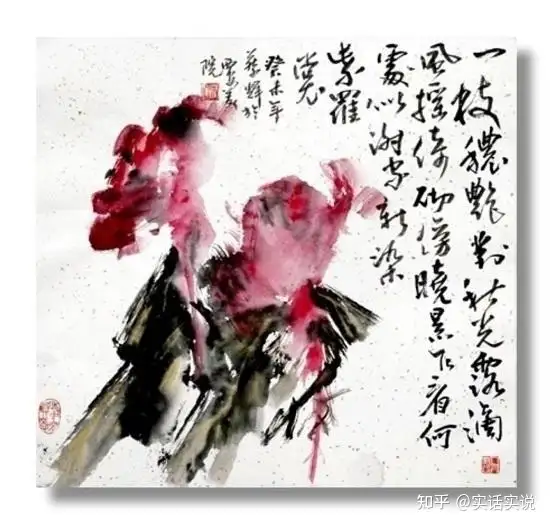 一枝穠艷對秋光露滴
風搖倚砌傍曉景乍看何
處似謝家新染
紫羅
裳
癸未年
蔡輝於
西安美
院
知乎 @实话实说